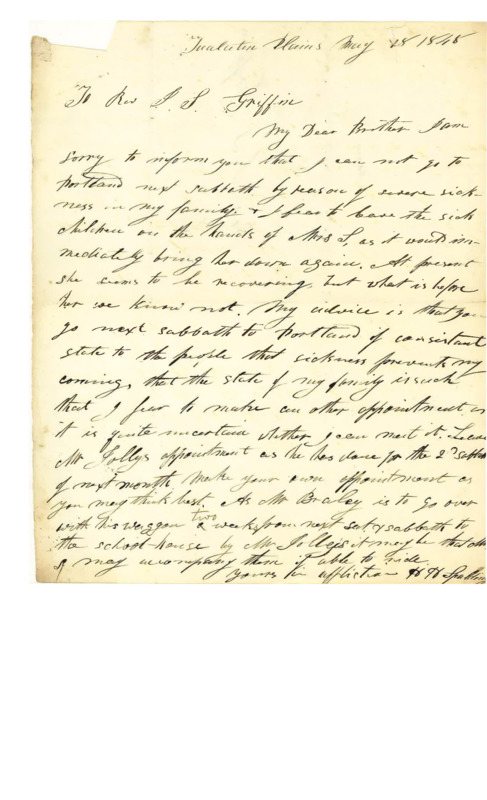 Tualatin Plains May 28 1848
To Rev J. S. Griffin
My Dear Brother I am
sorry to inform you that I can not go to
Portland next sabbath by reason of severe sick-
ness in my family. & I fear to leave the sick
children on the hands of Mrs S. as it would im-
mediately bring her down again. At present
she seems to be recovering, but what is before
her we know not. My advice is that you
go next sabbath to Portland if consistant
state to the people that sickness prevents my
coming, that the state of my family is such
that I fear to make an other appointment as
it is quite uncertain whether I can meet it. Leave
Mr Jollys appointment as he has done for the 2d sabbath
of next month. Make your own appointment as
you may think best. As Mr Braley is to go over
with his waggon two weeks from next sat. & sabbath to
the school-house by Mr Jolleys it may be that Mrs
S may accompany them if able to ride.
Yours in affliction H H Spalding